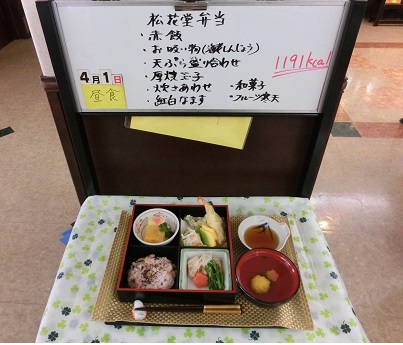 松花堂弁当
・赤飯
・お吸い物(海老しんじょう)
・天ぷら盛り合わせ
・厚焼玉子
・炊き合わせ
・紅白なます
・和菓子
・フルーツ寒天
1191kcal
4月1日
昼食